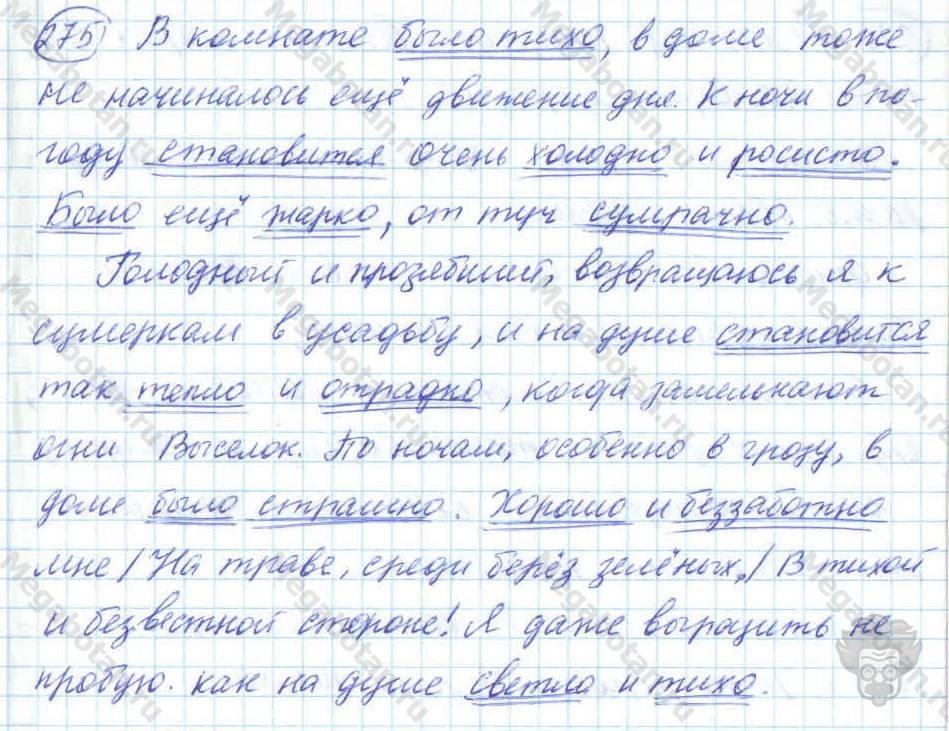 275) В комнате было тихо, в доме тоже
не начиналось ещё движение дня. К ночи в по-
году становится очень холодно и росисто.
Было ещё жарко, от туч сумрачно.
Голодный и прозябший, возвращаюсь я к
сумеркам в усадьбу, и на душе становится
так тепло и отрадно, когда замелькают
огни Выселок. По ночам, особенно в грозу, в
доме было страшно. Хорошо и беззаботно
мне / На траве, среди берёз зелёных, / В тихой
и безвестной стороне! Я даже выразить не
пробую. как на душе светло и тихо.
Megabotan.ru